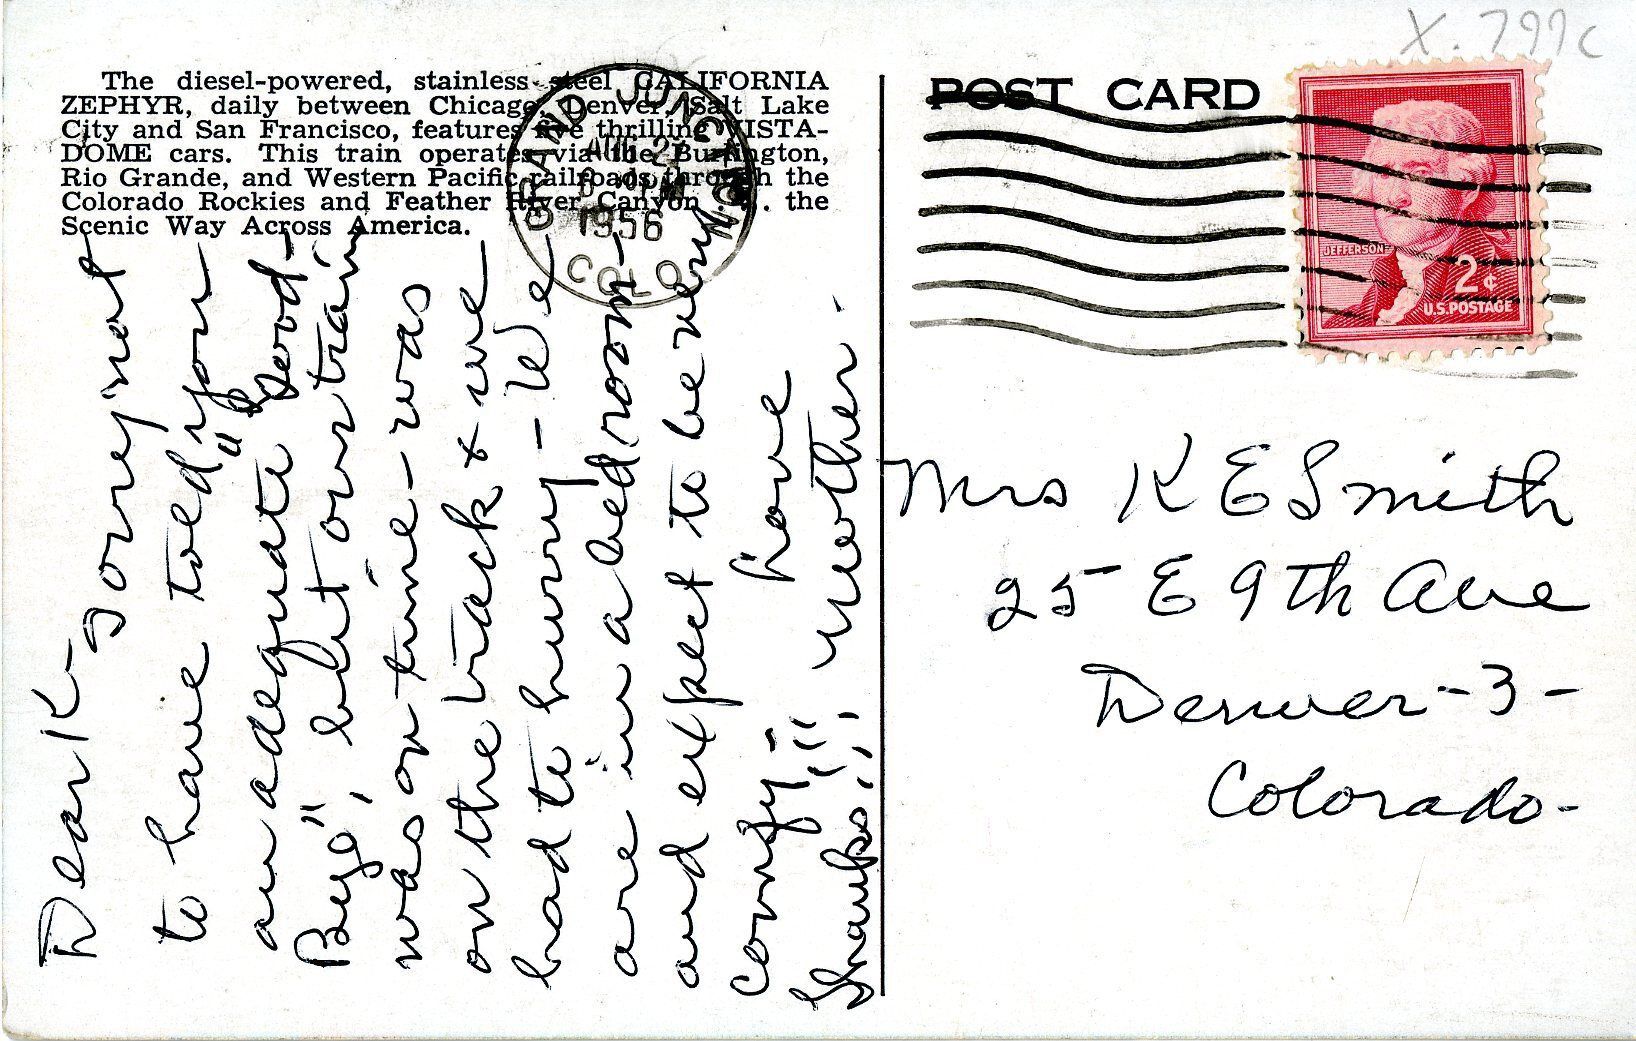 The diesel-powered, stainless steel CALIFORNIA
ZEPHYR, daily between Chicago, Denver, Salt Lake
City and San Francisco, features five thrilling VISTA-
DOME cars. This train operates via the Burlington,
Rio Grande, and Western Pacific railroads through the
Colorado Rockies and Feather River Canyon . . . the
Scenic Way Across America.
GRAND JUNCTION
AUG
1956
COLO
Dear K - Sorry not
to have told you
an adequate "Good-
Bye", but our train
was on time - was
on the track & we
had to hurry - We
are in a bedroom -
and expect to be very
comfy - Love
Thanks, Mother.
POST CARD
X.799c
JEFFERSON
2¢
U.S. POSTAGE
Mrs K E Smith
25 E 9th Ave
Denver - 3 -
Colorado -